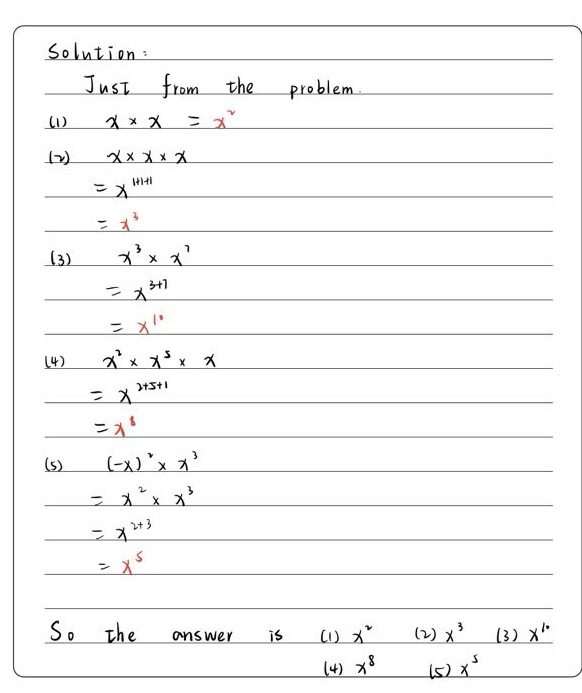 Solution:
Just from the problem.
(1) x × x = x²
(2) x × x × x
= x¹⁺¹⁺¹
= x³
(3) x³ × x⁷
= x³⁺⁷
= x¹⁰
(4) x² × x⁵ × x
= x²⁺⁵⁺¹
= x⁸
(5) (-x)² × x³
= x² × x³
= x²⁺³
= x⁵
So the answer is (1) x² (2) x³ (3) x¹⁰
(4) x⁸ (5) x⁵